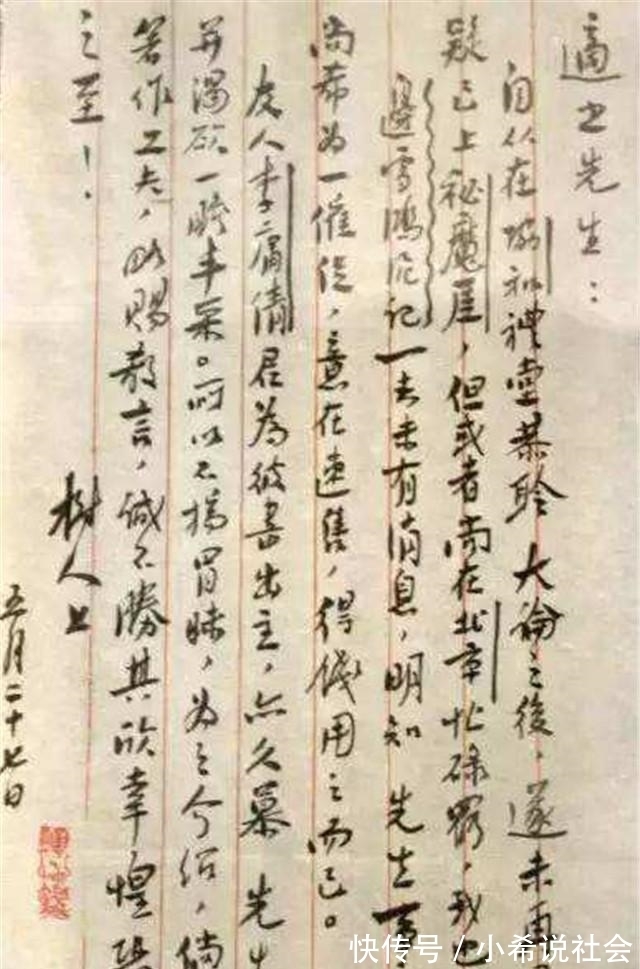 適之先生：
自从在協和禮堂恭聆大論之後，遂未再
疑已上祕魔崖，但或者尚在北京忙碌罢，我也
邊雪鴻泥记一去未有消息，明知先生事
尚希为一催促，意在速售，得錢用之而已。
友人李庸倩君為彼書出主，亦久慕先生
并渴欲一瞻丰采。所以不揣冒昧，为之介绍，倘
著作工夫，略賜教言，诚不勝其欣幸惶恐
之至！
樹人上
五月二十七日
快传号/小希说社会